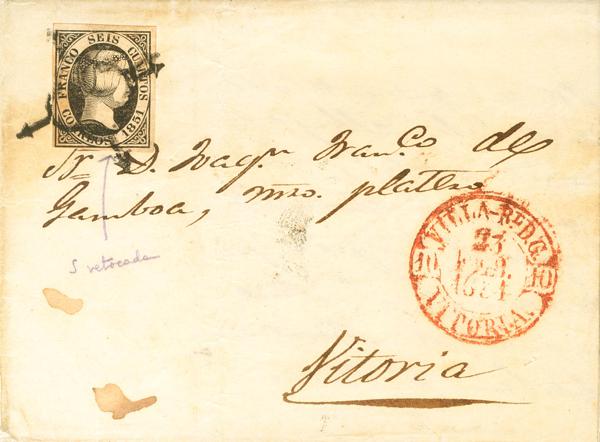 FRANCO SEIS CUARTOS
CORREOS 1851
Sr. D. Joaqn. Franco. de
Gamboa, mro. platero
S retocada
VILLA-Rl. D G.
23
FEB.
1851
10 10
VITORIA.
Vitoria